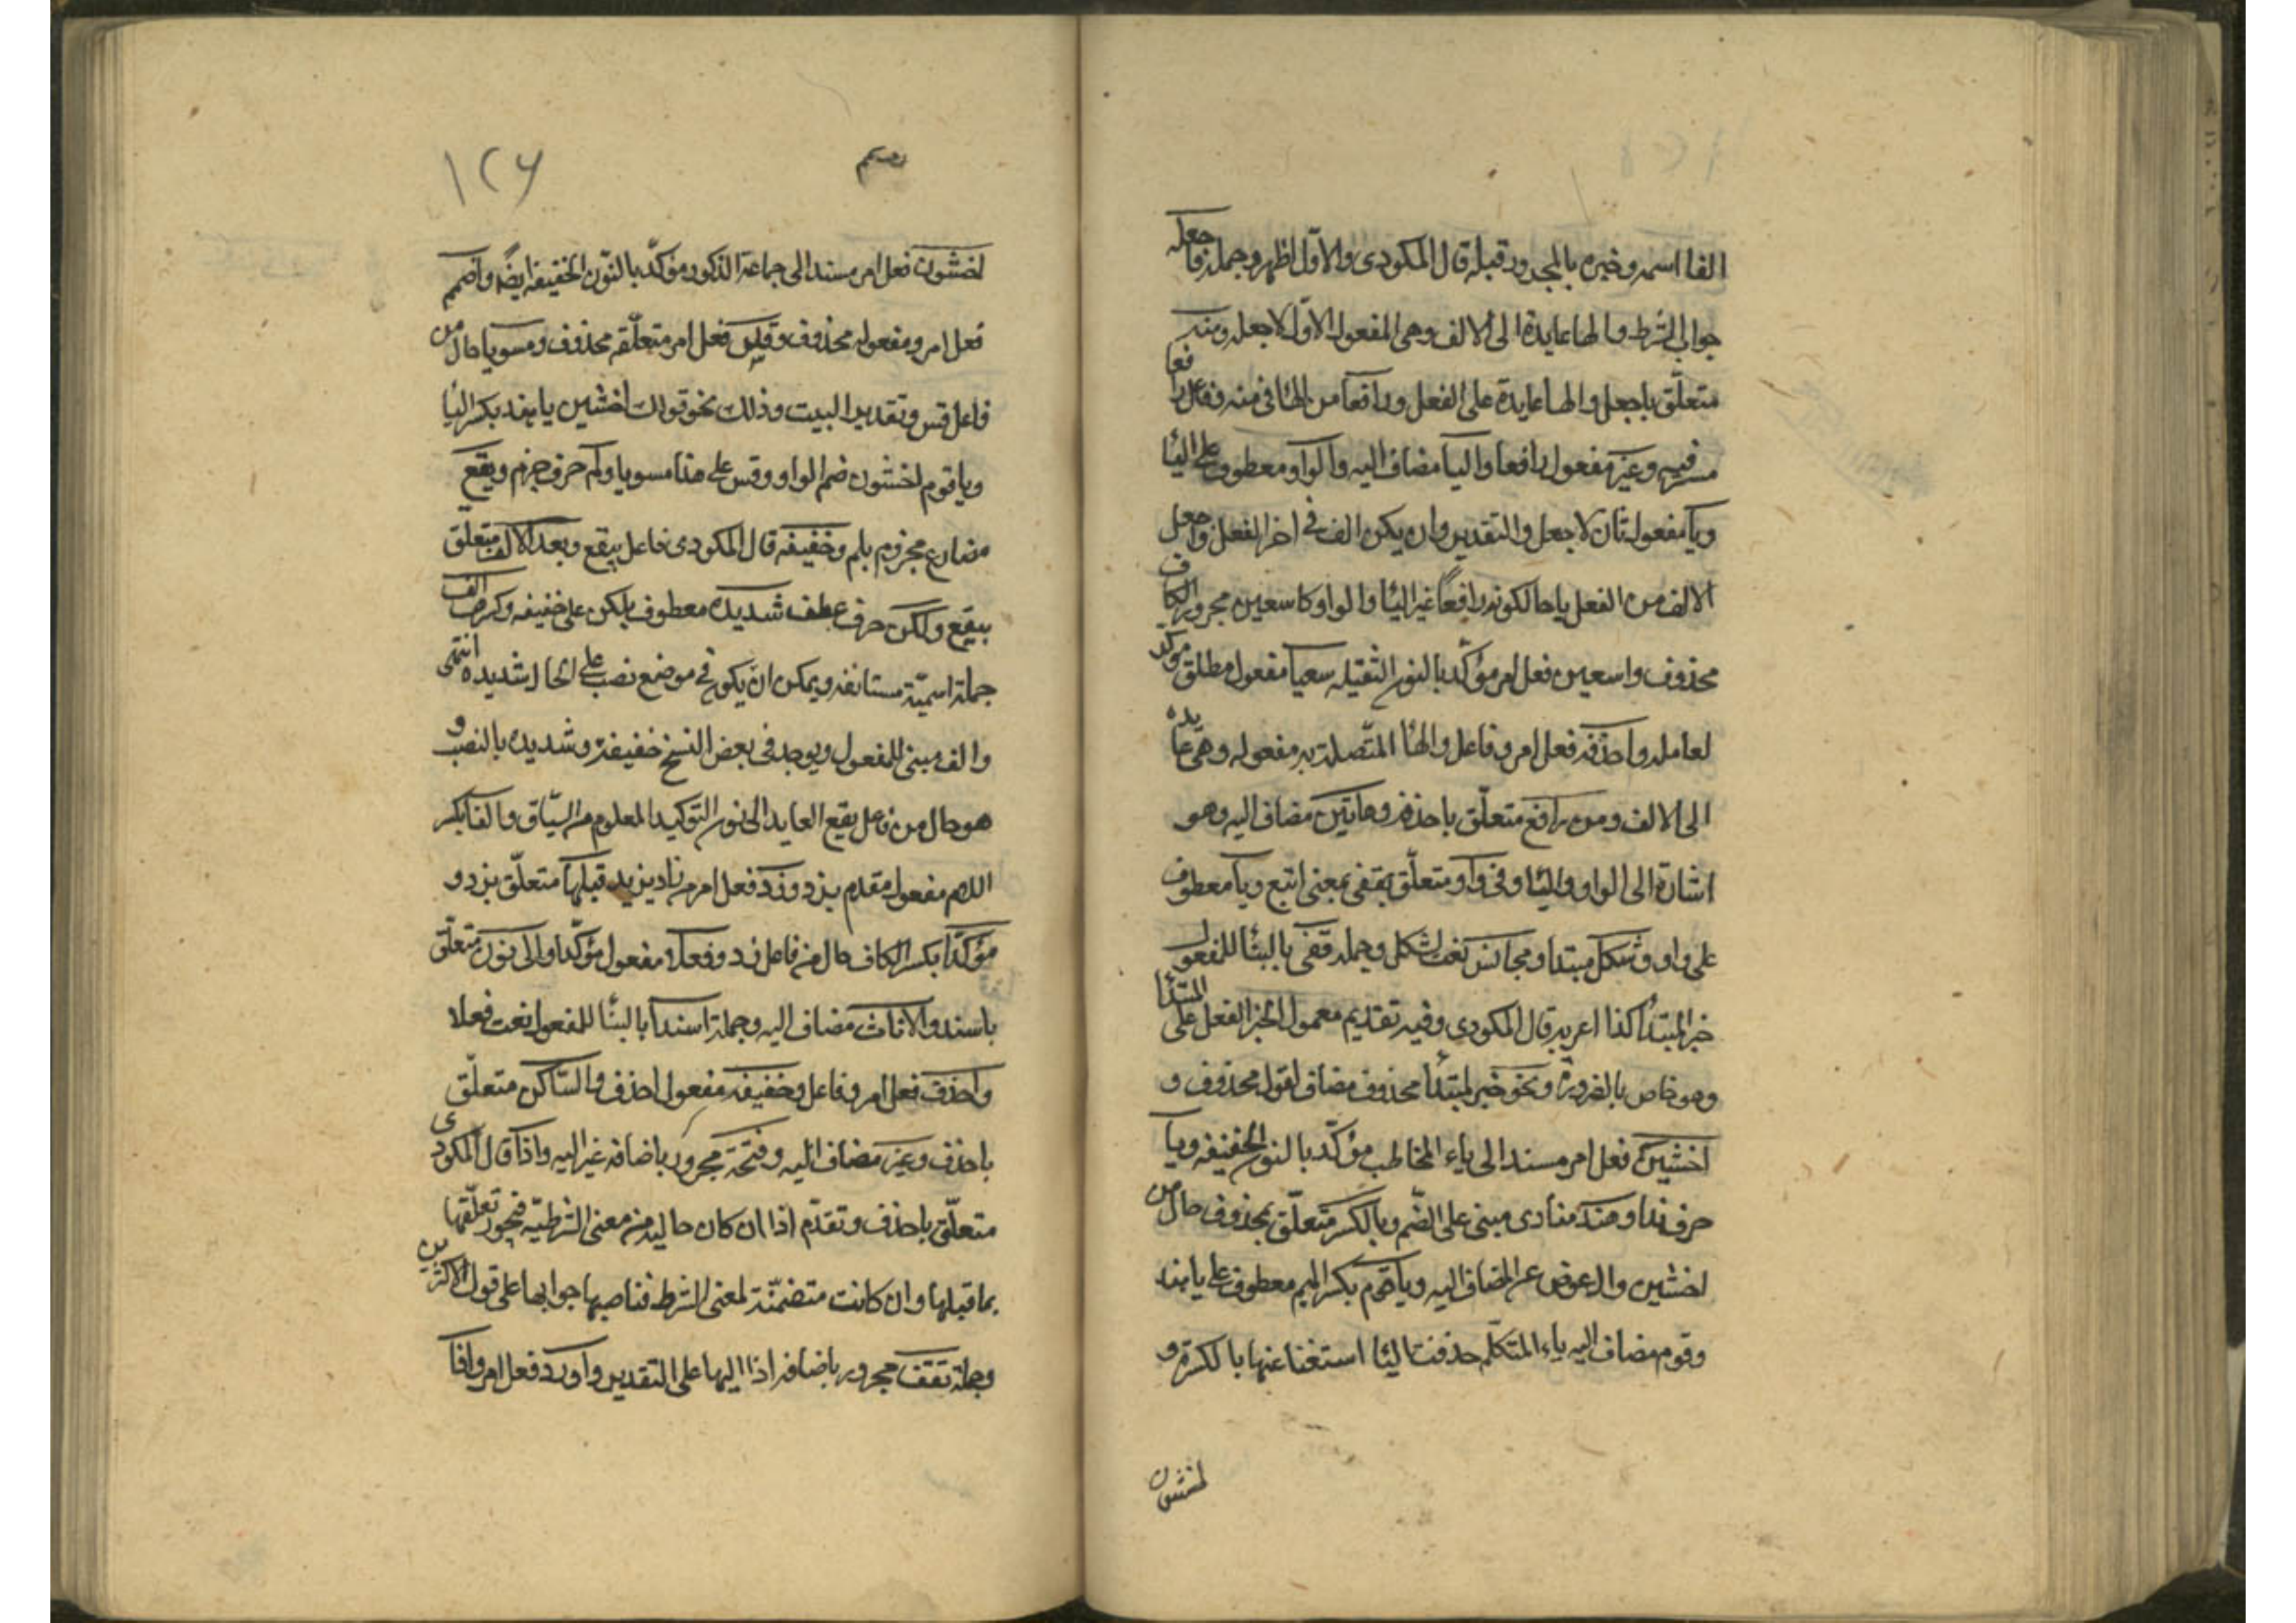 الفا اسمه وخبره بالمجرور قبله قال المكودى والاول اظهر وجملة فاجعله
جواب الشرط والها عايدة الى الالف وهى المفعول الاول لاجعل ومنه
متعلّق باجعل والها عايدة على الفعل ورافعا من الها فى منه ففاعل رافعا
مستتر فيه وغير مفعول رافعا واليا مضاف اليه والواو معطوف على اليا
ويا مفعول ثان لاجعل والتقدير وان يكن الف فى اخر الفعل فاجعل
الالف من الفعل يا حالكونه رافعاً غير اليا والواو كاسعين مجرور الكاف
محذوف واسعين فعل امر مؤكّد بالنون الثقيله سعيا مفعول مطلق موكد
لعامله واحذفه فعل امر وفاعل والها المتّصلة به مفعوله وهى عايده
الى الالف ومن رافع متعلّق باحذفه وهاتين مضاف اليه وهو
اشارة الى الواو واليا وفى واو متعلّق بقفى بمعنى اتبع ويا معطوف
على واو وشكل مبتدا ومجانس نعت لشكل وجملة قفى بالبنا للمفعول
خبر المبتدأ كذا اعربه قال المكودى وفيه تقديم معمول الخبر الفعل على المبتدا
وهو خاص بالضرورة ونحو خبر لمبتدأ محذوف مضاف لقول محذوف و
اخشين فعل امر مسند الى ياء المخاطب مؤكّد بالنون الخفيفه ويا
حرف ندا وهند منادى مبنى على الضّم وبالكسر متعلّق بمحذوف حال من
اخشين وال عوض عن المضاف اليه ويا قوم بكسر الميم معطوف على يا هند
وقوم مضاف اليه ياء المتكلّم حذفت اليا استغنا عنها بالكسرة و
اخشون
١٢٦
اخشون فعل امر مسند الى جماعة الذكور مؤكّد بالنّون الخفيفة ايضًا واضمم
فعل امر ومفعوله محذوف وقس فعل امر متعلّقه محذوف ومسويا حال من
فاعل قس وتقدير البيت وذلك نحو قولك اخشين يا هند بكسر اليا
ويا قوم اخشون ضم الواو وقس على هذا مسويا ولم حرف جزم ويقع
مضارع مجزوم بلم وخفيفه قال المكودى فاعل بيقع وبعد الالف متعلّق
بيقع ولكن حرف عطف شديده معطوف بلكن على خفيفه وكسرها الف
جملة اسميّة مستانفه ويمكن ان يكون فى موضع نصب على الحال لشديده انتهى
والف مبنى للمفعول ويوجد فى بعض النسخ خفيفة وشديده بالنصب و
هو حال من فاعل يقع العايد الى نون التوكيد المعلوم من السّياق والفا بكسر
اللام مفعول مقدم بزد وزد فعل امر من زاد يزيد قبلها متعلّق بزد و
مؤكّدا بكسر الكاف حال من فاعل زد وفعلا مفعول مؤكّدا والى نون متعلّق
باسند والاناث مضاف اليه وجملة اسندا بالبنا للمفعول نعت فعلا
واحذف فعل امر وفاعل وخفيفه مفعول احذف والسّاكن متعلّق
باحذف وغير مضاف اليه وفتحة مجرور باضافة غير اليه واذا قال المكودى
متعلّق باحذف وتقدّم اذا ان كان خاليه من معنى الشرطيّه فيجوز تعلّقها
بما قبلها وان كانت متضمّنة لمعنى الشرط فناصبها جوابها على قول الاكثرين
وجملة تقف مجرور باضافة اذا اليها على التقدير واردد فعل امر واذا